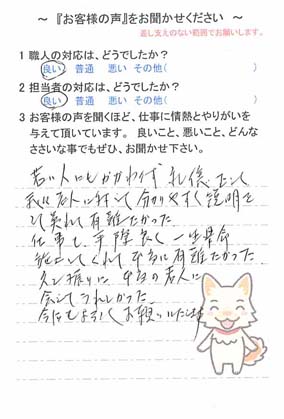 ～ 『お客様の声』をお聞かせください ～
差し支えのない範囲でお願いします。
1 職人の対応は、どうでしたか?
良い 普通 悪い その他( )
2 担当者の対応は、どうでしたか?
良い 普通 悪い その他( )
3 お客様の声を聞くほど、仕事に情熱とやりがいを
与えて頂いています。 良いこと、悪いこと、どんな
ささいな事でもぜひ、お聞かせ下さい。
若い人にもかかわらず 礼儀正しく
老人に対して 分りやすく説明を
して呉れて有難たかった
仕事も 手際良く一生懸命
施工してくれて本当に有難たかった
久し振りに 本当の若人に
会えてうれしかった
今后もよろしくお願いいたします